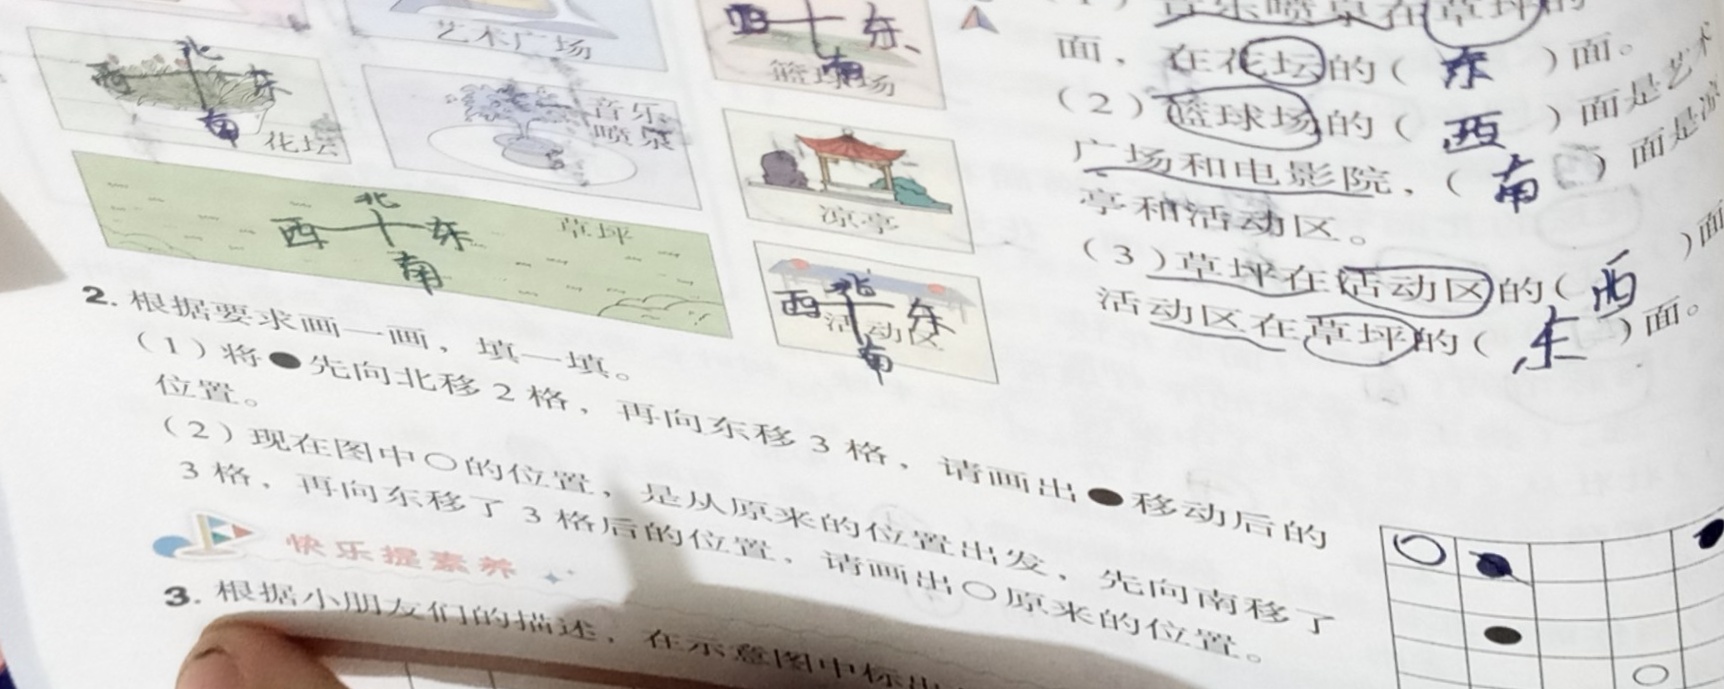 艺术广场
西 东
南
篮球场
北
西 东
南
花坛
音乐
喷泉
凉亭
北
西 东
南
草坪
北
西 东
活动区
南
音乐喷泉在草坪的
面，在花坛的（ 东 ）面。
（2）篮球场的（ 西 ）面是艺术
广场和电影院，（ 南 ）面是凉
亭和活动区。
（3）草坪在活动区的（ 西 ）面
活动区在草坪的（ 东 ）面。
2. 根据要求画一画，填一填。
（1）将●先向北移2格，再向东移3格，请画出●移动后的
位置。
（2）现在图中○的位置，是从原来的位置出发，先向南移了
3格，再向东移了3格后的位置，请画出○原来的位置。
快乐提素养
3. 根据小朋友们的描述，在示意图中标出